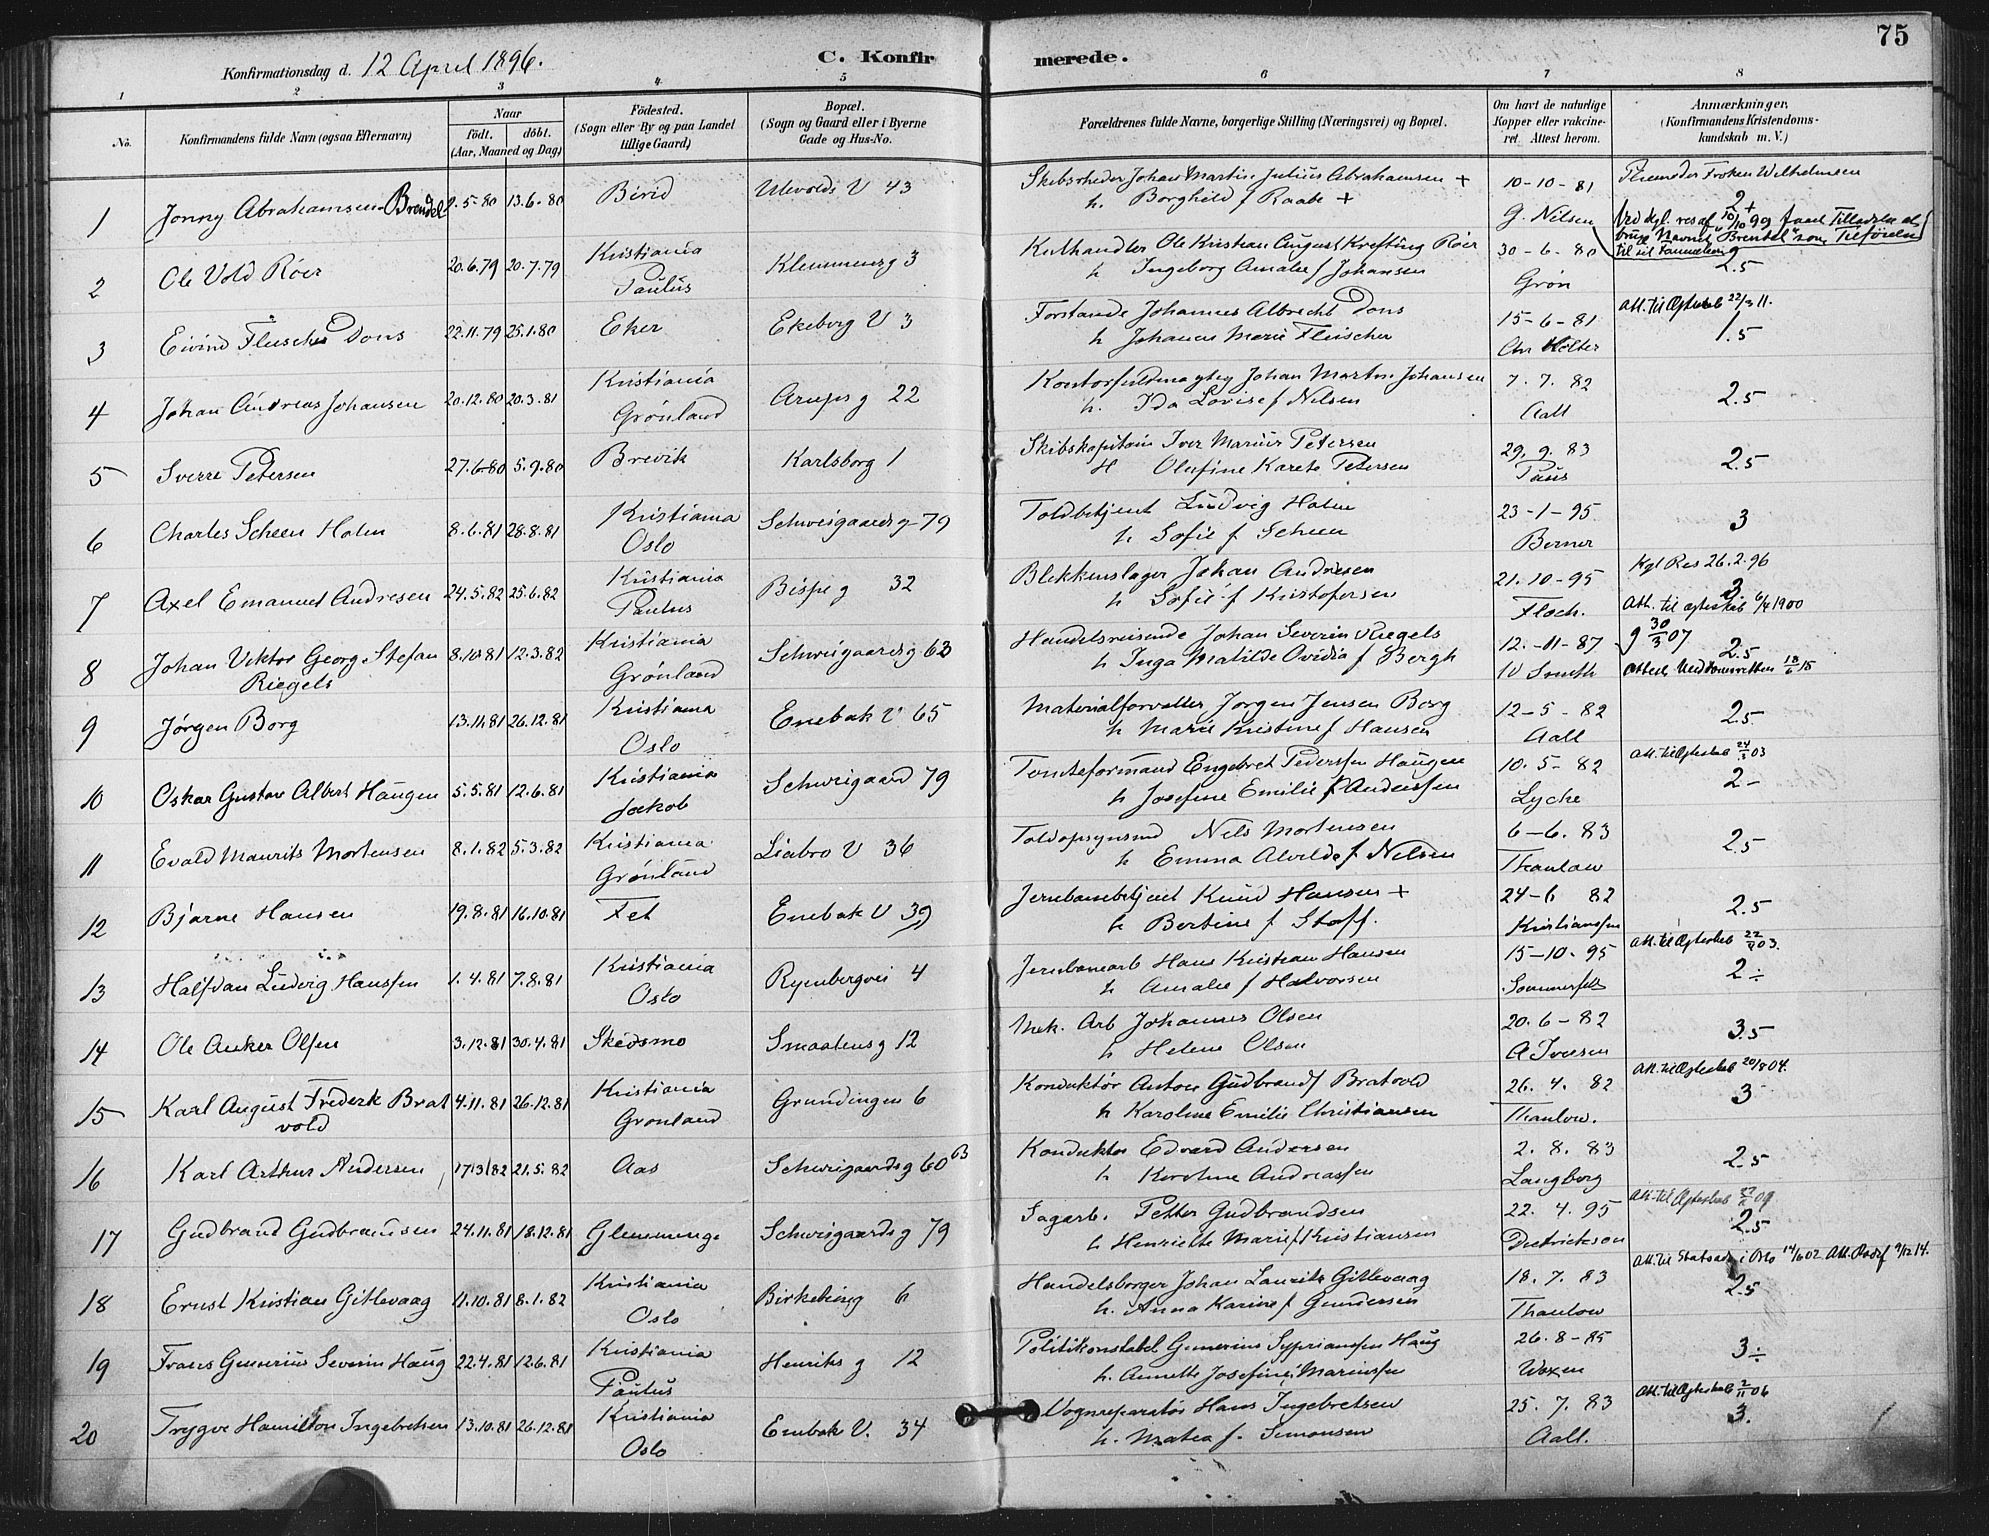 75
Konfirmationsdag d. 12 April 1896.
C. Konfirmerede.
1 2 3 4 5 6 7 8
No. Konfirmandens fulde Navn (ogsaa Efternavn) Naar födt. döbt. (Aar, Maaned og Dag) Födested. (Sogn eller By og paa Landet tillige Gaard) Bopæl. (Sogn og Gaard eller i Byerne Gade og Hus-No. Forældrenes fulde Navne, borgerlige Stilling (Næringsvei) og Bopæl. Om havt de naturlige Kopper eller vakcineret. Attest herom. Anmærkninger. (Konfirmandens Kristendomskundskab m. V.)
1 Jonny Abrahamsen-Brendel 2.5.80 13.6.80 Birid Ulvolds V 43 Skibsrheder Johan Martin Julius Abrahamsen + 10-10-81 Fröken Wilhelmsen
h. Borghild f Raabe + G. Nilsen 2+
Ved kgl. res af 10/10 99 faaet Tilladelse at
bruge Navnet "Brendel" som Tilføielse
til sit Familienavn
2 Ole Vold Röer 20.6.79 20.7.79 Kristiania Paulus Klemmensg 3 Kulhandler Ole Kristian August Krefting Röer 30-6-80
h Ingeborg Amalie f Johansen Grön 2.5
3 Eivind Fleischer Dons 22.11.79 25.1.80 Eker Ekeberg V 3 Forstander Johannes Albrecht Dons 15-6-81 Att. til Ægteskab 22/3 11.
h Johanne Marie Fleischer Chr Holter 1.5
4 Johan Andreas Johansen 20.12.80 20.3.81 Kristiania Grönland Arups g 22 Kontorfuldmægtig Johan Martin Johansen 7.7.82
h. Ida Lovise f Nilsen Aall 2.5
5 Sverre Petersen 27.6.80 5.9.80 Brevik Karlsborg 1 Skibskaptein Iver Marius Petersen 29.9.83
H Olufine Karete Petersen Paus 2.5
6 Charles Scheen Holm 8.6.81 28.8.81 Kristiania Oslo Schweigaardsg 79 Toldbetjent Ludvig Holm 23-1-95
h. Sofie f Scheen Berner 3
7 Axel Emanuel Andresen 24.5.82 25.6.82 Kristiania Paulus Bispeg 32 Blikkenslager Johan Andresen 21.10-95 Kgl Res 26.2.96
h Sofie f Kristofersen Floch. 3
Att. til ægteskab 6/4 1900
8 Johan Viktor Georg Stefan Riegels 8.10.81 12.3.82 Kristiania Grönland Schweigaardsg 63 Handelsreisende Johan Severin Riegels 12.-11-87 g 30/3 07
h Inga Matilde Ovidia f Bergh W Smith 2.5
9 Jørgen Borg 13.11.81 26.12.81 Kristiania Oslo Enebak V 65 Materialforvalter Jørgen Jensen Borg 12-5-82
h Marie Kristine f Hansen Aall 2.5
10 Oskar Gustav Albert Haugen 5.5.81 12.6.81 Kristiania Jakob Schweigaard 79 Tomteformand Engebret Pedersen Haugen 10.5-82 Att. til Ægteskab 24/3 03
h Josefine Emilie f Andersen Lyche 2-
11 Evald Maurits Mortensen 8.1.82 5.3.82 Kristiania Grönland Liabro V 36 Toldopsynsmd Nils Mortensen 6-6.83
h Emma Alvilde f Nilsen Thaulow 2.5
12 Bjarne Hansen 19.8.81 16.10.81 Fet Enebak V 39 Jernbanebetjent Knud Hansen + 24-6 82
h Bertine f Stoff. Kristiansen 2.5
13 Halfdan Ludvig Hanssen 1.4.81 7.8.81 Kristiania Oslo Ryenbergvei 4 Jernbanearb Hans Kristian Hansen 15-10.95 Att. til Ægteskab 22/8 03.
h Amalie f Halvorsen Sommerfelt 2÷
14 Ole Anker Olsen 3.12.81 30.4.81 Skedsmo Smaalensg 12 Mek. Arb Johannes Olsen 20.6-82
h Helene Olsen A Iversen 3.5
15 Karl August Frederk Bratvold 4.11.81 26.12.81 Kristiania Grönland Grundingen 6 Konduktör Anton Gudbrands Bratvold 26.4.82 Att. til Ægteskab 20/8 04.
h Karoline Emilie Christiansen Thaulow. 3
16 Karl Arthur Andersen 17.3.82 21.5.82 Aas Schweigaardsg 60 B Konduktør Edvard Andersen 2.8.83
h Karoline Andreassen Langberg 2.5
17 Gudbrand Gudbrandsen 24.11.81 18.12.81 Glemminge Schweigaardsg 79 Sagarb. Petter Gudbrandsen 22.4.95 Att. til Ægteskab 09
h Henriette Marie f Kristiansen Dietrichson 2.5
18 Ernst Kristian Gitlevaag 11.10.81 8.1.82 Kristiania Oslo Birkebeinerg 6 Handelsborger Johan Laurits Gitlevaag 18.7.83
h. Anna Karine f Gundersen Thaulow 2.5
19 Frans Gunerius Severin Haug 22.4.81 12.6.81 Kristiania Paulus Henriks g 12 Politikonstabel Gunerius Sypriansen Haug 26.8-85
h. Annette Josefine Mariussen Woxen 3÷
20 Trygve Hamilton Ingebretsen 13.10.81 26.12.81 Kristiania Oslo Enebak V. 34 Vognreparatör Hans Ingebretsen 25.7.83 Att. til Ægteskab 2/11 06
h. Matea f. Simonsen Aall. 3.